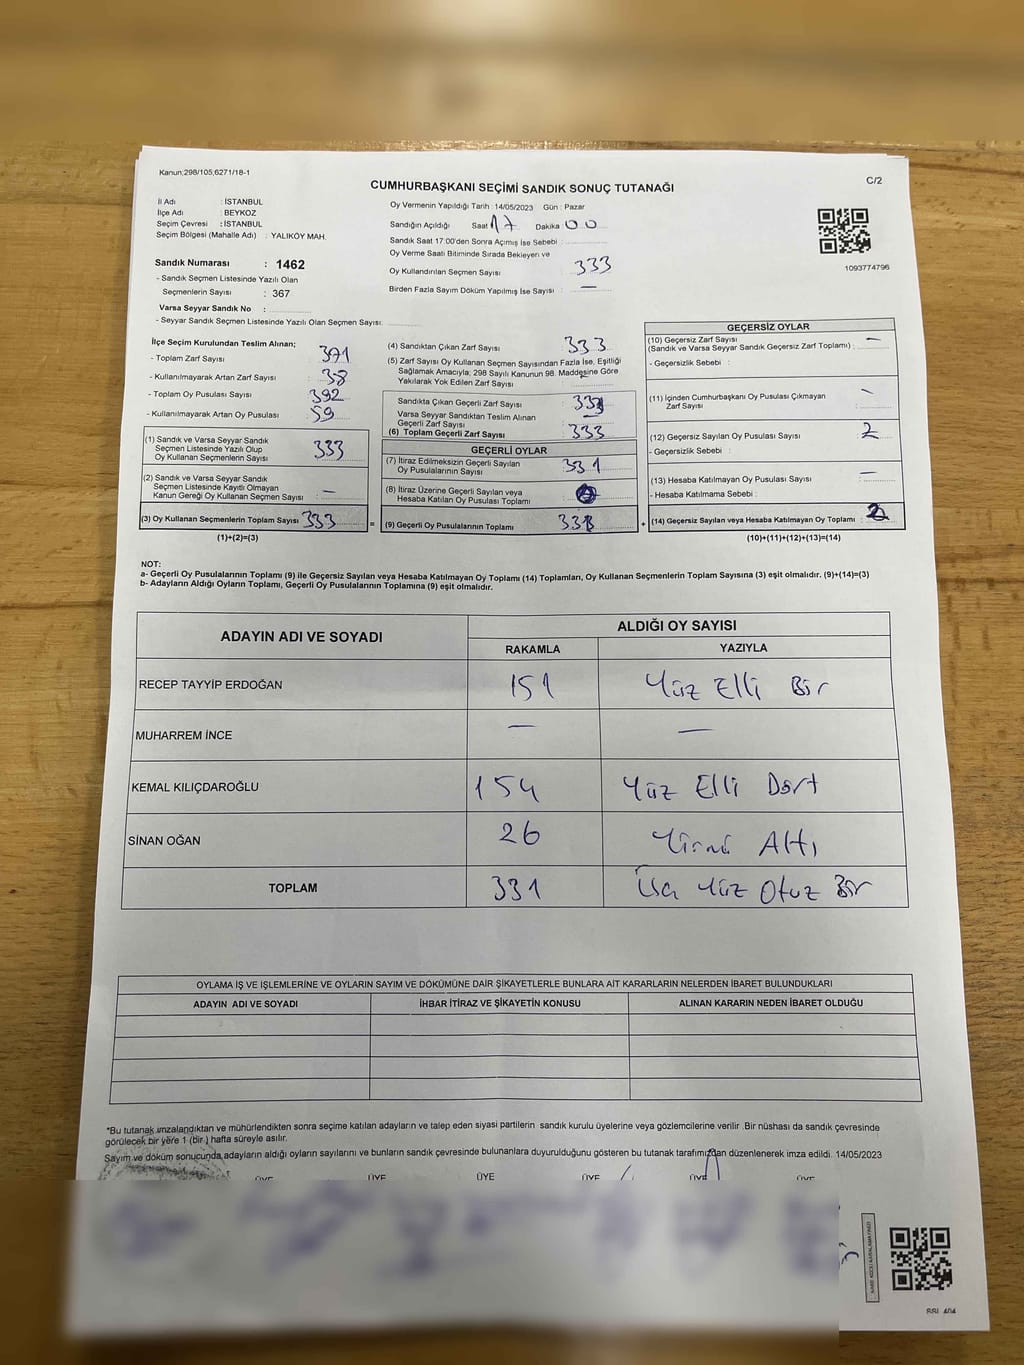 Kanun;298/105,6271/18-1
C/2
CUMHURBAŞKANI SEÇİMİ SANDIK SONUÇ TUTANAĞI
İl Adı : İSTANBUL
İlçe Adı : BEYKOZ
Seçim Çevresi : İSTANBUL
Seçim Bölgesi (Mahalle Adı) : YALIKÖY MAH.
Sandık Numarası : 1462
- Sandık Seçmen Listesinde Yazılı Olan
Seçmenlerin Sayısı : 367
Varsa Seyyar Sandık No :
- Seyyar Sandık Seçmen Listesinde Yazılı Olan Seçmen Sayısı:
Oy Vermenin Yapıldığı Tarih : 14/05/2023 Gün : Pazar
Sandığın Açıldığı Saat 17 Dakika 00
Sandık Saat 17:00'den Sonra Açımış İse Sebebi :
Oy Verme Saati Bitiminde Sırada Bekleyen ve
Oy Kullandırılan Seçmen Sayısı : 333
Birden Fazla Sayım Döküm Yapılmış İse Sayısı : —
1093774796
İlçe Seçim Kurulundan Teslim Alınan;
- Toplam Zarf Sayısı : 371
- Kullanılmayarak Artan Zarf Sayısı : 38
- Toplam Oy Pusulası Sayısı : 392
- Kullanılmayarak Artan Oy Pusulası : 59
(1) Sandık ve Varsa Seyyar Sandık
Seçmen Listesinde Yazılı Olup
Oy Kullanan Seçmenlerin Sayısı : 333
(2) Sandık ve Varsa Seyyar Sandık
Seçmen Listesinde Kayıtlı Olmayan
Kanun Gereği Oy Kullanan Seçmen Sayısı : —
(3) Oy Kullanan Seçmenlerin Toplam Sayısı : 333
(1)+(2)=(3)
=
(4) Sandıktan Çıkan Zarf Sayısı : 333
(5) Zarf Sayısı Oy Kullanan Seçmen Sayısından Fazla İse, Eşitliği
Sağlamak Amacıyla, 298 Sayılı Kanunun 98. Maddesine Göre
Yakılarak Yok Edilen Zarf Sayısı :
Sandıkta Çıkan Geçerli Zarf Sayısı : 333
Varsa Seyyar Sandıktan Teslim Alınan
Geçerli Zarf Sayısı : —
(6) Toplam Geçerli Zarf Sayısı : 333
GEÇERLİ OYLAR
(7) İtiraz Edilmeksizin Geçerli Sayılan
Oy Pusulalarının Sayısı : 331
(8) İtiraz Üzerine Geçerli Sayılan veya
Hesaba Katılan Oy Pusulası Toplamı :
(9) Geçerli Oy Pusulalarının Toplamı :
+
GEÇERSİZ OYLAR
(10) Geçersiz Zarf Sayısı : —
(Sandık ve Varsa Seyyar Sandık Geçersiz Zarf Toplamı)
- Geçersizlik Sebebi :
(11) İçinden Cumhurbaşkanı Oy Pusulası Çıkmayan
Zarf Sayısı : —
(12) Geçersiz Sayılan Oy Pusulası Sayısı : 2
- Geçersizlik Sebebi :
(13) Hesaba Katılmayan Oy Pusulası Sayısı : —
- Hesaba Katılmama Sebebi :
(14) Geçersiz Sayılan veya Hesaba Katılmayan Oy Toplamı : 2
(10)+(11)+(12)+(13)=(14)
NOT:
a- Geçerli Oy Pusulalarının Toplamı (9) ile Geçersiz Sayılan veya Hesaba Katılmayan Oy Toplamı (14) Toplamları, Oy Kullanan Seçmenlerin Toplam Sayısına (3) eşit olmalıdır. (9)+(14)=(3)
b- Adayların Aldığı Oyların Toplamı, Geçerli Oy Pusulalarının Toplamına (9) eşit olmalıdır.
ADAYIN ADI VE SOYADI ALDIĞI OY SAYISI
RAKAMLA YAZIYLA
RECEP TAYYİP ERDOĞAN 151 Yüz Elli Bir
MUHARREM İNCE — —
KEMAL KILIÇDAROĞLU 154 Yüz Elli Dört
SİNAN OĞAN 26 Yirmi Altı
TOPLAM 331 Üç Yüz Otuz Bir
OYLAMA İŞ VE İŞLEMLERİNE VE OYLARIN SAYIM VE DÖKÜMÜNE DAİR ŞİKAYETLERLE BUNLARA AİT KARARLARIN NELERDEN İBARET BULUNDUKLARI
ADAYIN ADI VE SOYADI İHBAR İTİRAZ VE ŞİKAYETİN KONUSU ALINAN KARARIN NEDEN İBARET OLDUĞU
*Bu tutanak imzalandıktan ve mühürlendikten sonra seçime katılan adayların ve talep eden siyasi partilerin sandık kurulu üyelerine veya gözlemcilerine verilir. Bir nüshası da sandık çevresinde
görülecek bir yere 1 (bir ) hafta süreyle asılır.
Sayım ve döküm sonucunda, adayların aldığı oyların sayılarını ve bunların sandık çevresinde bulunanlara duyurulduğunu gösteren bu tutanak tarafımızdan düzenlenerek imza edildi. 14/05/2023
ÜYE ÜYE ÜYE ÜYE ÜYE ÜYE